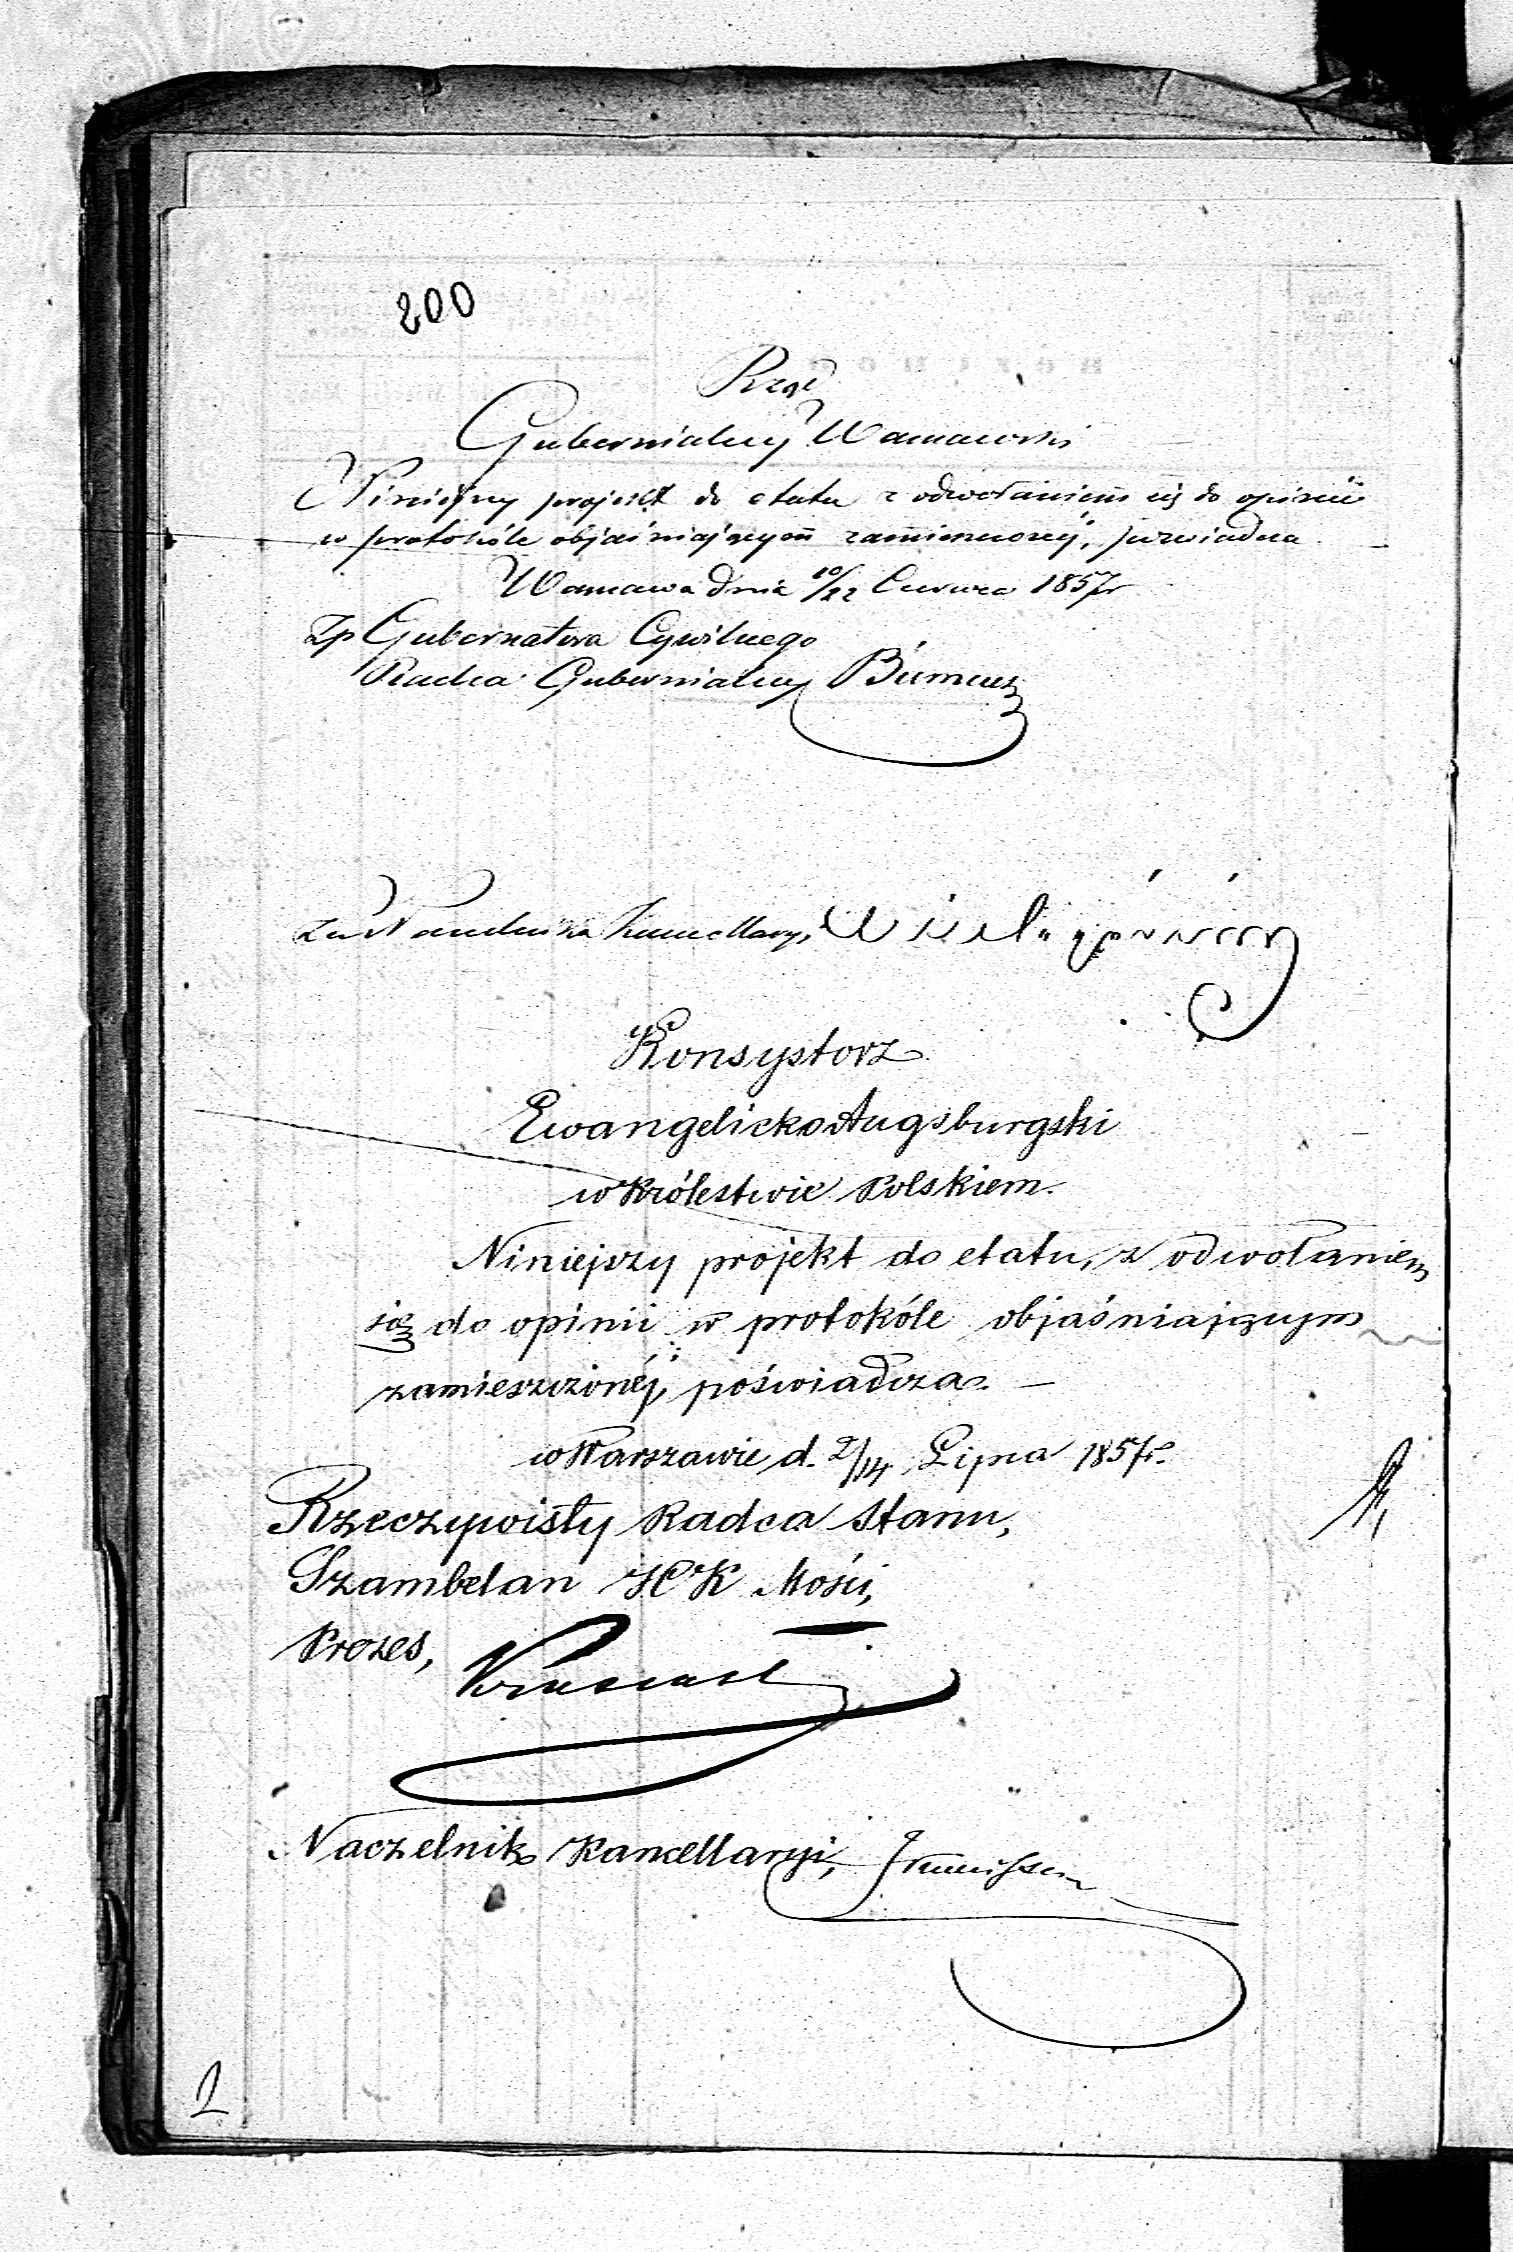 200
Rząd
Gubernialny Warszawski
Niniejszy projekt do etatu z odwołaniem się do opinii
w protokóle objaśniającym zamieszczonej, poświadcza
Warszawa dnia 10/22 Czerwca 1857 r
Zp Gubernatora Cywilnego
Radca Gubernialny
za Naczelnika Kancellaryi,
Konsystorz
Ewangelicko Augsburgski
w Królestwie Polskiem.
Niniejszy projekt do etatu, z odwołaniem
się do opinii w protokóle objaśniającym
zamieszczonéj, poświadcza. —
w Warszawie d. 2/14 Lipca 1857 r.
Rzeczywisty Radca Stanu,
Szambelan JCK Mości,
Prezes,
Naczelnik Kancellaryi,